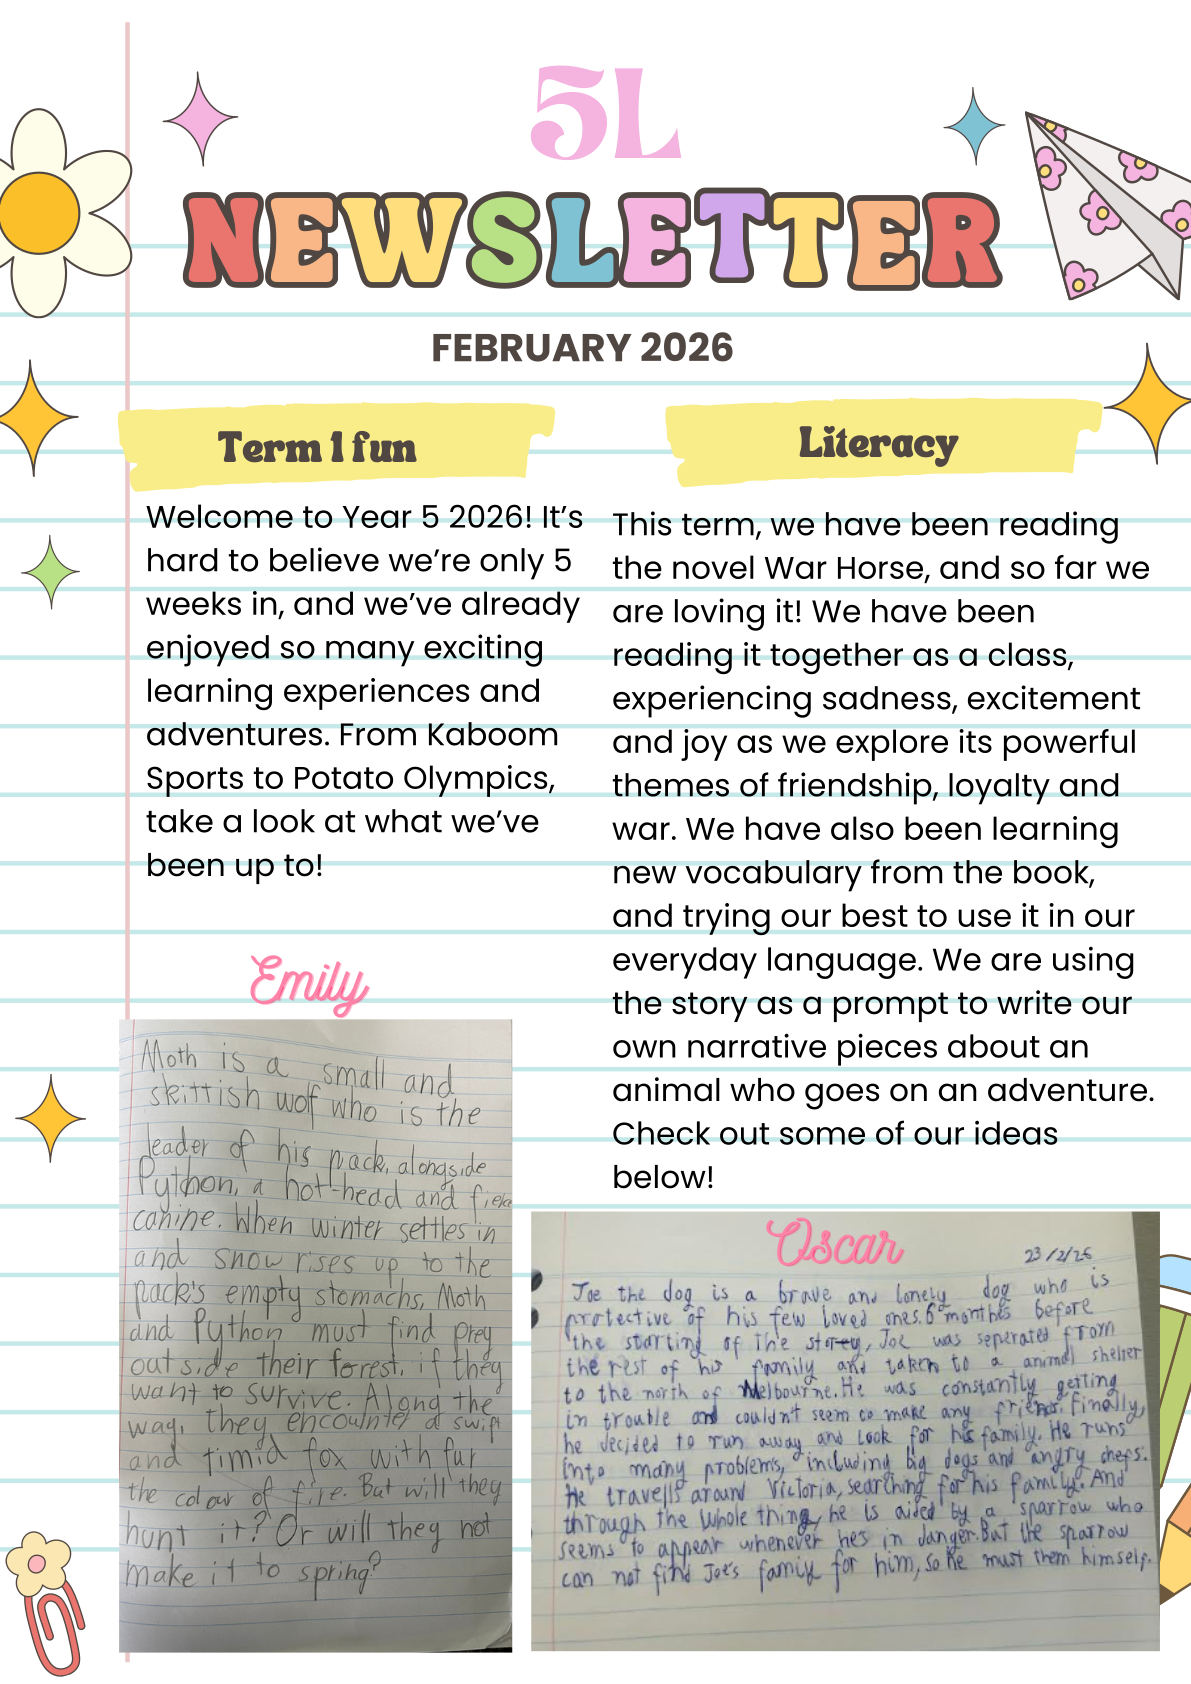 5L
NEWSLETTER
FEBRUARY 2026
Term 1 fun
Welcome to Year 5 2026! It's
hard to believe we're only 5
weeks in, and we've already
enjoyed so many exciting
learning experiences and
adventures. From Kaboom
Sports to Potato Olympics,
take a look at what we've
been up to!
Literacy
This term, we have been reading
the novel War Horse, and so far we
are loving it! We have been
reading it together as a class,
experiencing sadness, excitement
and joy as we explore its powerful
themes of friendship, loyalty and
war. We have also been learning
new vocabulary from the book,
and trying our best to use it in our
everyday language. We are using
the story as a prompt to write our
own narrative pieces about an
animal who goes on an adventure.
Check out some of our ideas
below!
Emily
Moth is a small and
skittish wolf who is the
leader of his pack, alongside
Python, a hot-head and
canine. When winter settles in
and snow rises up to the
pack's empty stomachs, Moth
and Python must find prey
outside their forest, if they
want to survive. Along the
way, they encounter a swift
and timid fox with fur
the colour of fire. But will they
hunt it? Or will they not
make it to spring?
Oscar
23/2/26
Joe the dog is a brave and lonely dog who is
protective of his few loved ones. 6 months before
the starting of the storey, Joe was seperated from
the rest of his family and taken to a animal shelter
to the north of Melbourne. He was constantly getting
in trouble and couldn't seem to make any friends. Finally,
he decided to run away and look for his family. He runs
into many problems, including big dogs and angry chefs.
He travells around Victoria, searching for his family. And
through the whole thing, he is aided by a sparrow who
seems to appear whenever he's in danger. But the sparrow
can not find Joe's family for him, so he must them himself.